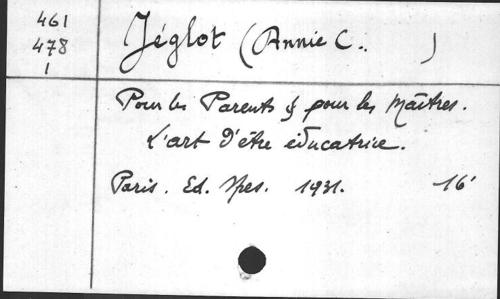 461
478
1
Jéglot (Annie C. )
Pour les Parents & pour les Maîtres.
L'art d'être éducatrice.
Paris. Ed. Spes. 1931. 16°